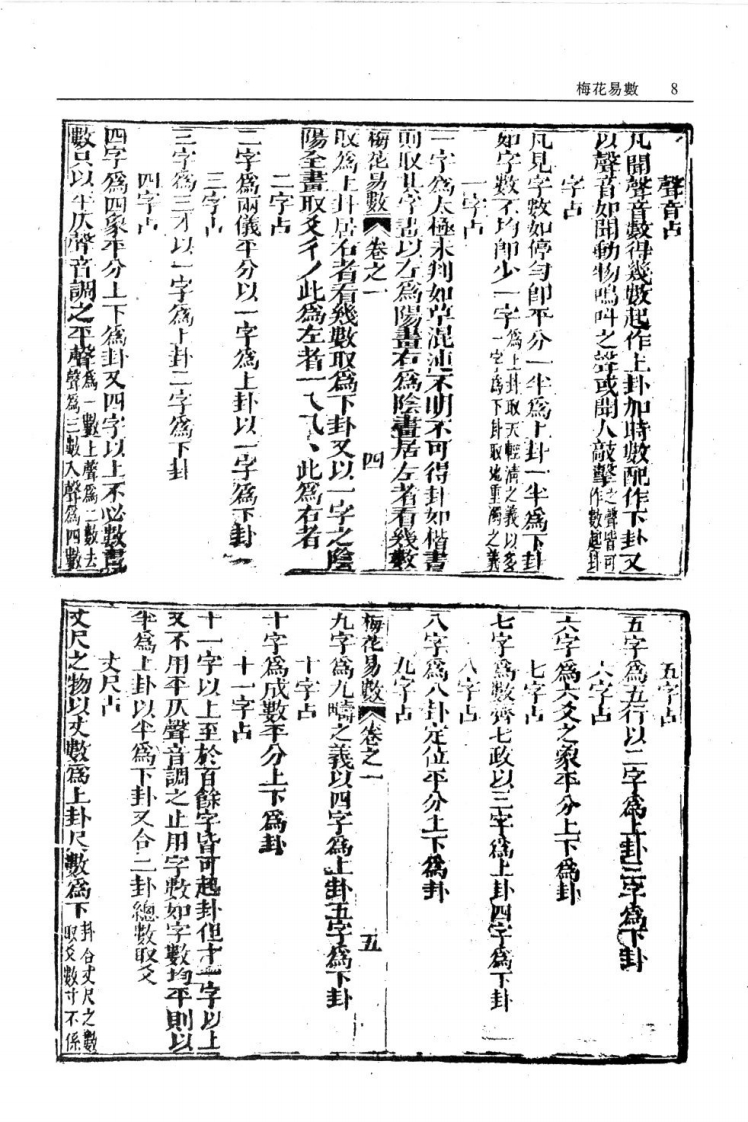 梅花易數 8
聲音占
凡聞聲音數得幾數起作上卦加時數配作下卦又
以聲音如聞動物鳴叫之聲或聞人敲擊之聲皆可作數起卦
字占
凡見字數如停勻即平分一半爲上卦一半爲下卦
如字數不均即少一字爲上卦取天輕清之義以多一字爲下卦取地重濁之義
一字占
一字爲太極未判如草混沌不明不可得卦如楷書
則取其字畫以左爲陽畫右爲陰畫居左者看幾數
梅花易數 卷之一 四
取爲上卦居右者看幾數取爲下卦又以一字之陰
陽全畫取爻彳丿此爲左者一乀乁丶此爲右者
二字占
二字爲兩儀平分以一字爲上卦以一字爲下卦
三字占
三字爲三才以一字爲上卦二字爲下卦
四字占
四字爲四象平分上下爲卦又四字以上不必數畫
數只以平仄聲音調之平聲爲一數上聲爲二數去聲爲三數入聲爲四數
五字占
五字爲五行以二字爲上卦三字爲下卦
六字占
六字爲六爻之象平分上下爲卦
七字占
七字爲數齊七政以三字爲上卦四字爲下卦
八字占
八字爲八卦定位平分上下爲卦
九字占
梅花易數 卷之一 五
九字爲九疇之義以四字爲上卦五字爲下卦
十字占
十字爲成數平分上下爲卦
十一字占
十一字以上至於百餘字皆可起卦但十一字以上
又不用平仄聲音調之止用字數如字數均平則以
半爲上卦以半爲下卦又合二卦總數取爻
丈尺占
丈尺之物以丈數爲上卦尺數爲下卦合丈尺之數取爻數寸不係